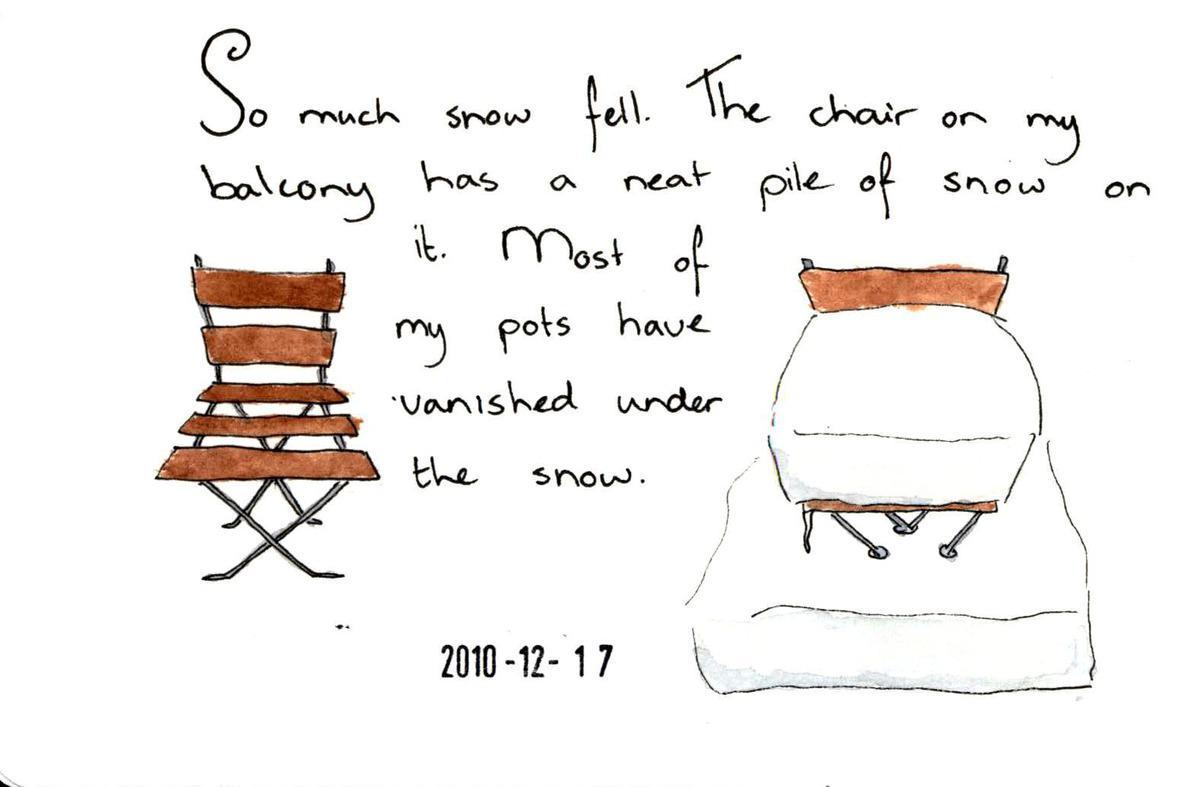 So much snow fell. The chair on my
balcony has a neat pile of snow on
it. Most of
my pots have
vanished under
the snow.
2010-12-17